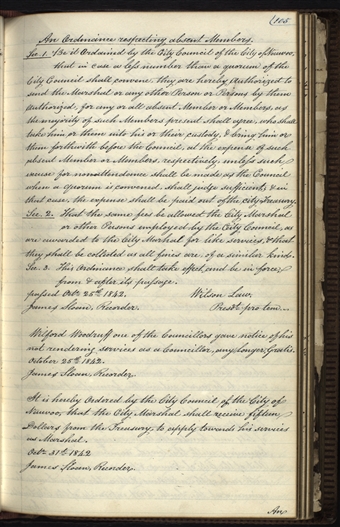 105
An Ordinance respecting absent Members.
Sec. 1. Be it Ordained by the City Council of the City of Nauvoo,
that in case a less number than a quorum of the
City Council shall convene, they are hereby authorized to
send the Marshal or any other Person or Persons by them
authorized, for any or all absent Member or Members, as
the majority of such Members present shall agree, who shall
take him or them into his or their custody, & bring him or
them forthwith before the Council, at the expence of such
absent Member or Members, respectively, unless such
excuse for nonattendance shall be made as the Council
when a quorum is convened, shall judge sufficient; & in
that case, the expense shall be paid out of the City Treasury.
Sec. 2. That the same fees be allowed the City Marshal
or other Persons employed by the City Council, as
are awarded to the City Marshal for like services, & that
they shall be collected as all fines are, of a similar kind.
Sec. 3. This Ordinance shall take effect, and be in force,
from & after its passage.
passed Octr. 25th 1842. Wilson Law.
James Sloan, Recorder. Presdt. pro tem
Wilford Woodruff one of the Councillors gave notice of his
not rendering services as a Councillor, any longer, Gratis.
October 25th 1842.
James Sloan, Recorder
It is hereby Ordered by the City Council of the City of
Nauvoo, that the City Marshal shall receive fifteen
Dollars from the Treasury, to apply towards his services
as Marshal.
Octr. 31st 1842
James Sloan, Recorder.
An